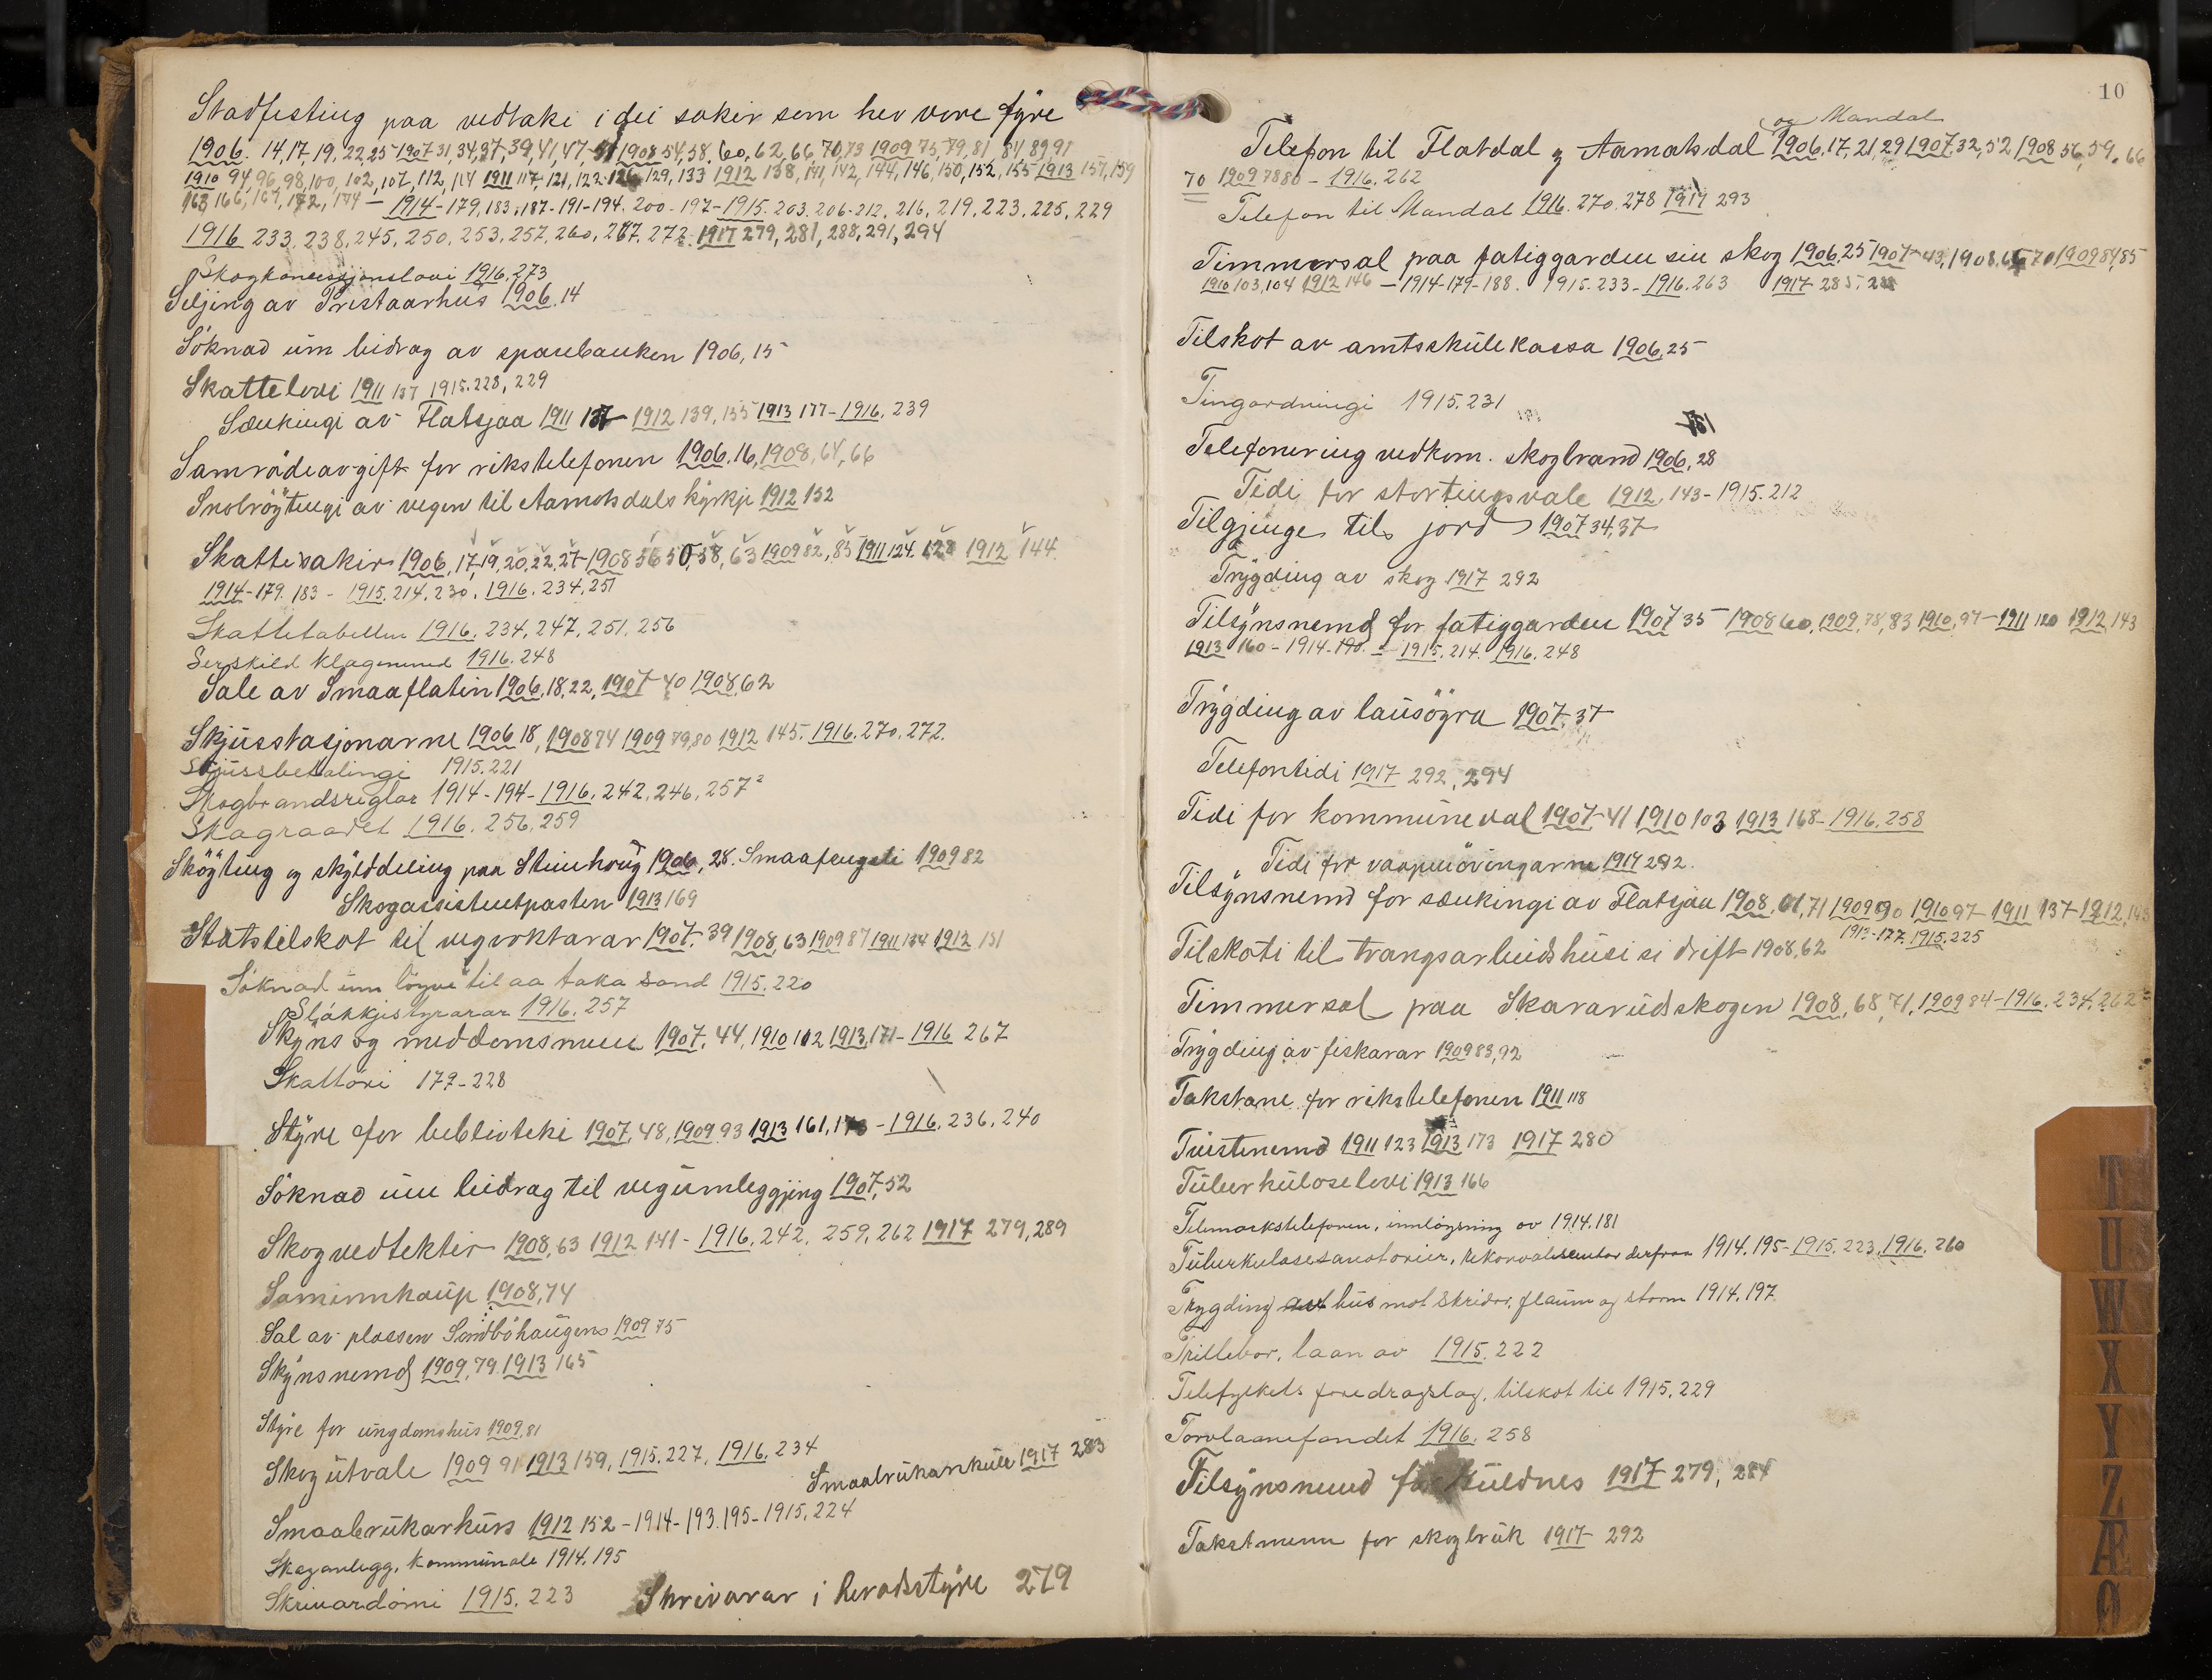 Stadfesting paa vedtaki i dei sakir som hev vore fyre
1906. 14, 17, 19, 22, 25 1907 31, 34, 37, 39, 41, 47, 51 1908 54, 58, 60, 62, 66, 70, 73 1909 75, 79, 81, 84, 89, 91
1910 94, 96, 98, 100, 102, 107, 112, 114 1911 117, 121, 122, 126, 129, 133 1912 138, 141, 142, 144, 146, 150, 152, 155 1913 157, 159
163, 166, 169, 172, 174 – 1914 – 179, 183, 187 - 191 - 194. 200 - 197 - 1915. 203. 206. 212. 216. 219. 223. 225. 229
1916 233. 238. 245. 250. 253. 257. 260. 267. 272. 1917 279, 281, 288, 291, 294
Skogkoncessjonslovi 1916. 273
Seljing av Prestaarhus 1906. 14
Söknad um bidrag av sparebanken 1906, 15
Skattelovi 1911 137 1915. 228, 229
Sænkingi av Flatsjaa 1911 137 - 1912 139, 155 1913 177 - 1916. 239
Samrödeavgift for rikstelefonen 1906. 16, 1908, 64, 66
Snolröytingi av vegen til Aamotsdals kyrkje 1912 152
Skattesakir 1906, 17, 19, 20, 22, 27 - 1908 56 50, 58, 63 1909 82, 85 1911 124. 128 1912 144
1914 - 179. 183 - 1915. 214. 230. 1916. 234. 251
Skattetabellen 1916. 234, 247, 251. 256
Serskild klagenemd 1916. 248
Sale av Smaaflatin 1906, 18, 22, 1907 40 1908, 62
Skjusstasjonarne 1906 18, 1908 74 1909 79, 80 1912 145. 1916. 270. 272.
Skjussbetalingi 1915. 221
Skogbrandsreglar 1914 - 194 - 1916. 242, 246, 257²
Skograadet 1916. 256. 259
Sköyting og skylddeling paa Steinhoug 1906, 28. Smaafengsli 1909 82
Skogassistentposten 1913 169
Statstilskot til vegvoktarar 1907. 39 1908, 63 1909 87 1911 134 1912 151
Söknad um löyve til aa taka sand 1915. 220
Slökkjestyrarar 1916. 257
Skyns og meddomsmenn 1907. 44, 1910 102 1913, 171 - 1916 267
Skattöri 179 - 228
Styre for biblioteki 1907, 48, 1909, 93 1913 161, 173 - 1916. 236. 240
Söknad um bidrag til vegumleggjing 1907, 52
Skogvedtekter 1908, 63 1912 141 - 1916. 242. 259, 262 1917 279, 289
Saminnkaup 1908, 74
Sal av plassen Sandböhaugens 1909 75
Skynsnemd 1909, 79. 1913 165
Styre for ungdomshus 1909, 81
Skogutvale 1909 91 1913 159, 1915. 227, 1916. 234
Smaabrukarskule 1917 283
Smaabrukarkurs 1912 152 - 1914 - 193. 195 - 1915. 224
Skoganlegg, kommunale 1914. 195
Skrivardömi 1915. 223 Skrivarar i heradsstyre 279
10
og Mandal
Telefon til Flatdal og Aamotsdal 1906, 17, 21, 29 1907, 32, 52 1908 56, 59, 66
70 1909 78 80 - 1916. 262
Telefon til Mandal 1916. 270. 278 1917 293
Timmersal paa fatiggarden sin skog 1906, 25 1907 43, 1908, 66 70 1909 84, 85
1910 103, 104 1912 146 – 1914 - 179 - 188. 1915. 233 - 1916. 263 1917 285.
Tilskot av amtsskulekassa 1906, 25
Tingordningi 1915. 231
151
Telefonering vedkom. skogbrand 1906, 28
Tidi for stortingsvale 1912. 143 - 1915. 212
Tilgjenge til jord 1907 34, 37
Trygding av skog 1917 292
Tilsynsnemd for fatiggarden 1907 35 - 1908 60, 1909, 78, 83 1910, 97 - 1911 120 1912, 143
1913 160 - 1914 - 190. - 1915. 214. 1916. 248
Trygding av lausöyra 1907. 37
Telefontidi 1917 292, 294
Tidi for kommuneval 1907 41 1910 103 1913 168 - 1916. 258
Tidi for vaapenövingarne 1917 282.
Tilsynsnemd for sænkingi av Flatsjaa 1908, 61, 71 1909 90 1910 97 - 1911 137 - 1912, 145
1913 - 177. 1915. 225
Tilskoti til tvangsarbeidshusi si drift 1908, 62
Timmersal paa Skararudskogen 1908, 68, 71, 1909 84 - 1916. 234. 262
Trygding av fiskarar 1909 83, 92
Takstane for rikstelefonen 1911 118
Tuistenemd 1911 123 1913 173 1917 280
Tuberkuloselovi 1913 166
Telemarkstelefonen, innlöysning av 1914. 181
Tuberkulosesanatorier, rekonvalesentar derfraa 1914. 195 - 1915. 223. 1916. 260
Trygding av hus mot skridor, flaum og storm 1914. 197
Trillebor, laan av 1915. 222
Telefylkets foredragslag, tilskot til 1915. 229
Torvlaanefondet 1916. 258
Tilsynsmend for kuldnes 1917 279, 284
Takstmenn for skogbruk 1917 292
T
U
W
X
Y
Z
Æ
Ø